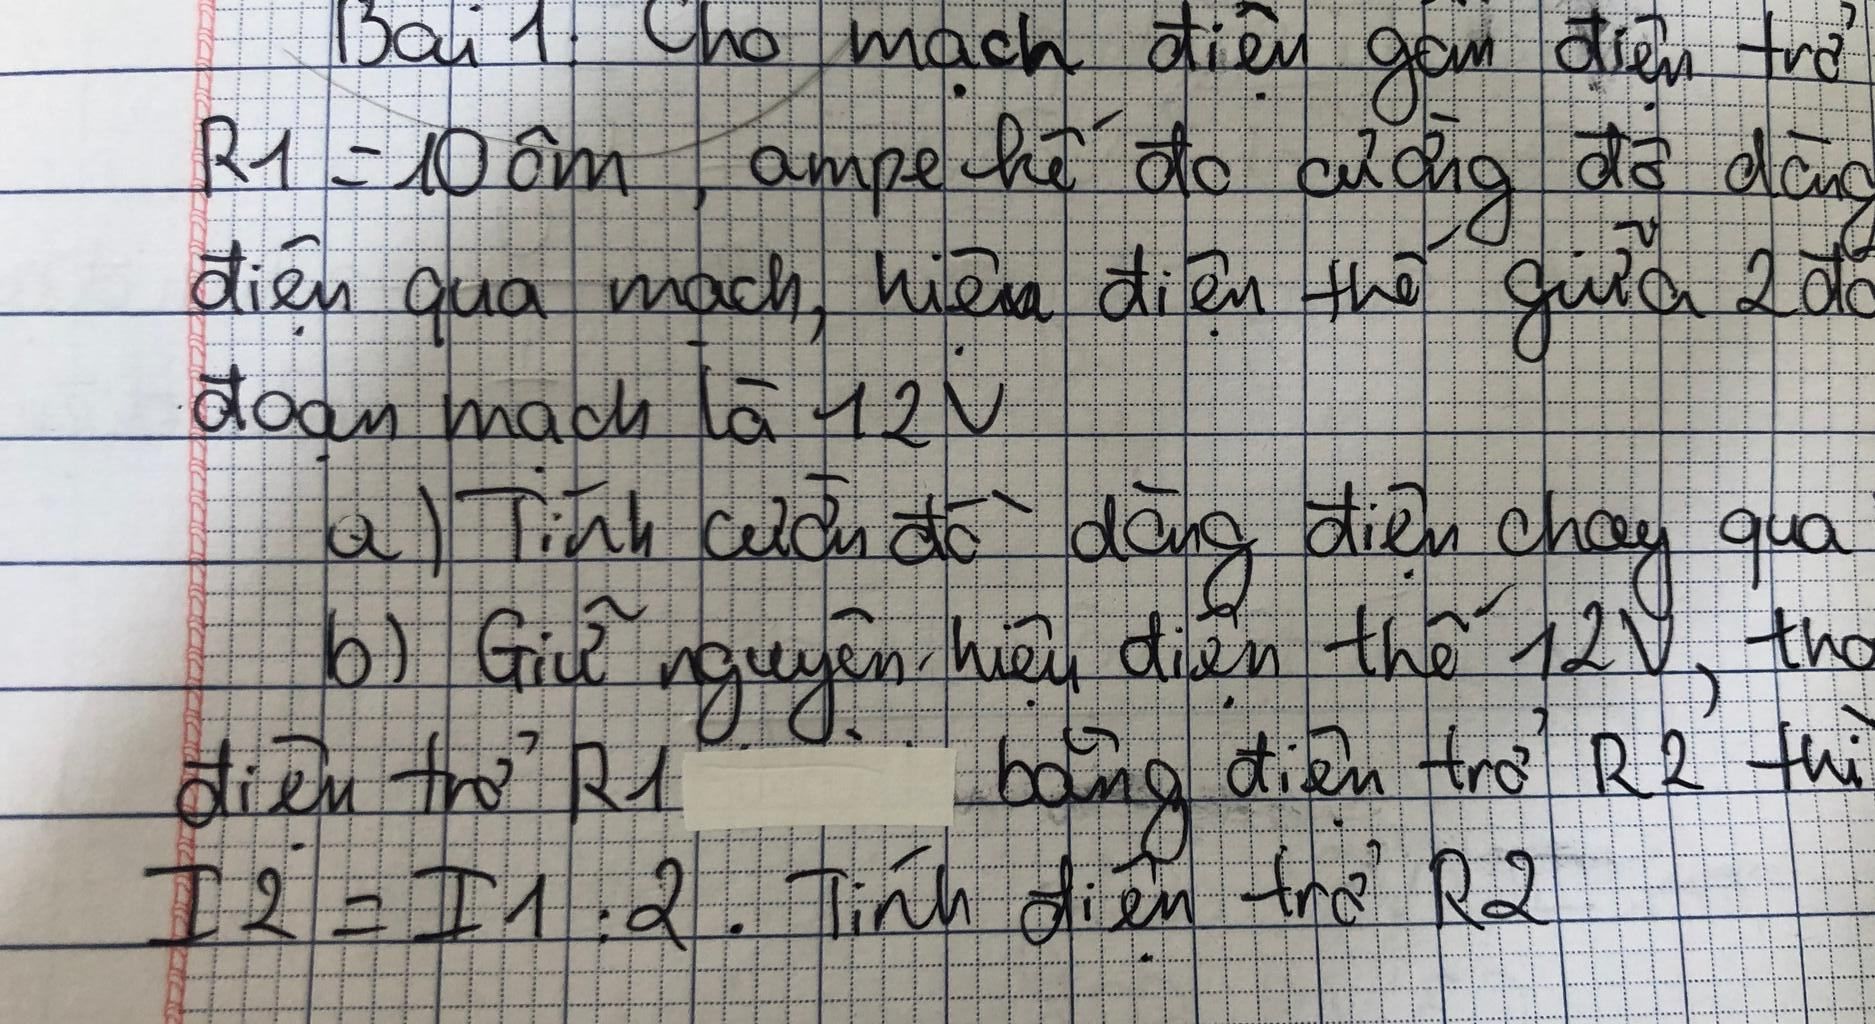 Bài 1: Cho mạch điện gồm điện trở
R1 = 10 ôm, ampe kế đo cường độ dòng
điện qua mạch, hiệu điện thế giữa 2 đ
đoạn mạch là 12V
a) Tính cườn độ dòng điện chạy qua
b) Giữ nguyên hiệu điện thế 12V, th
điện trở R1 bằng điện trở R2 thì
I2 = I1 : 2. Tính điện trở R2